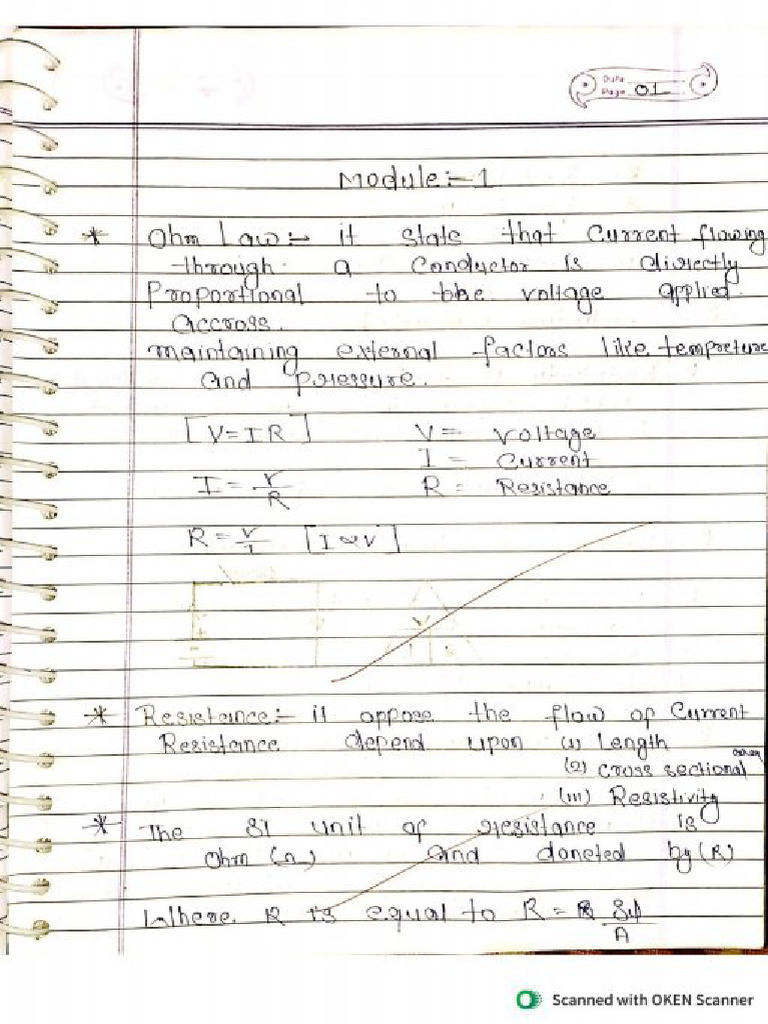 Date
Page 01
Module:- 1
* Ohm Law:- it stats that Current flowing
through a Conductor is directly
Proportional to the voltage applied
accross.
maintaining external factors like tempreture
and pressure.
[V=IR] V= Voltage
I = Current
I = V/R R = Resistance
R = V/I [I ∝ V]
* Resistance:- it oppose the flow of Current
Resistance depend upon (i) Length
(2) cross sectional
(iii) Resistivity
* The SI unit of resistance is
Ohm (Ω) and doneted by (R)
Where R is equal to R =
A
Scanned with OKEN Scanner